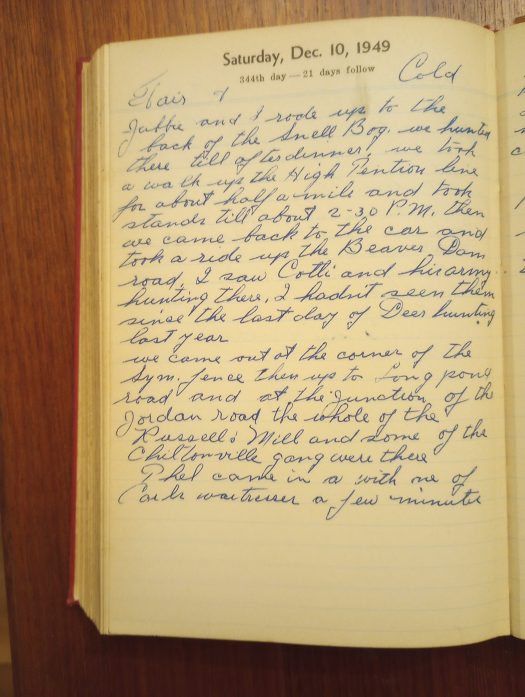 Saturday, Dec. 10, 1949
344th day — 21 days follow
Fair & Cold
Jubbie and I rode up to the
back of the Snell Bog. we hunted
there till after dinner, we took
a walk up the High Tention line
for about half a mile and took
stands till about 2-30 P.M. then
we came back to the car and
took a ride up the Beaver Dam
road, I saw Cotti and his army
hunting there, I hadn't seen them
since the last day of Deer hunting
last year
we came out at the corner of the
Sym. fence then up to Long pond
road and at the junction of the
Jordan road the whole of the
Russells Mill and some of the
Chiltonville gang were there
Phel came in a with one of
Earls waitresses a few minutes